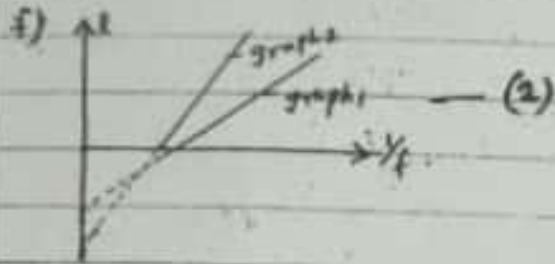 f)
l
graph2
graph1
— (2)
1/f